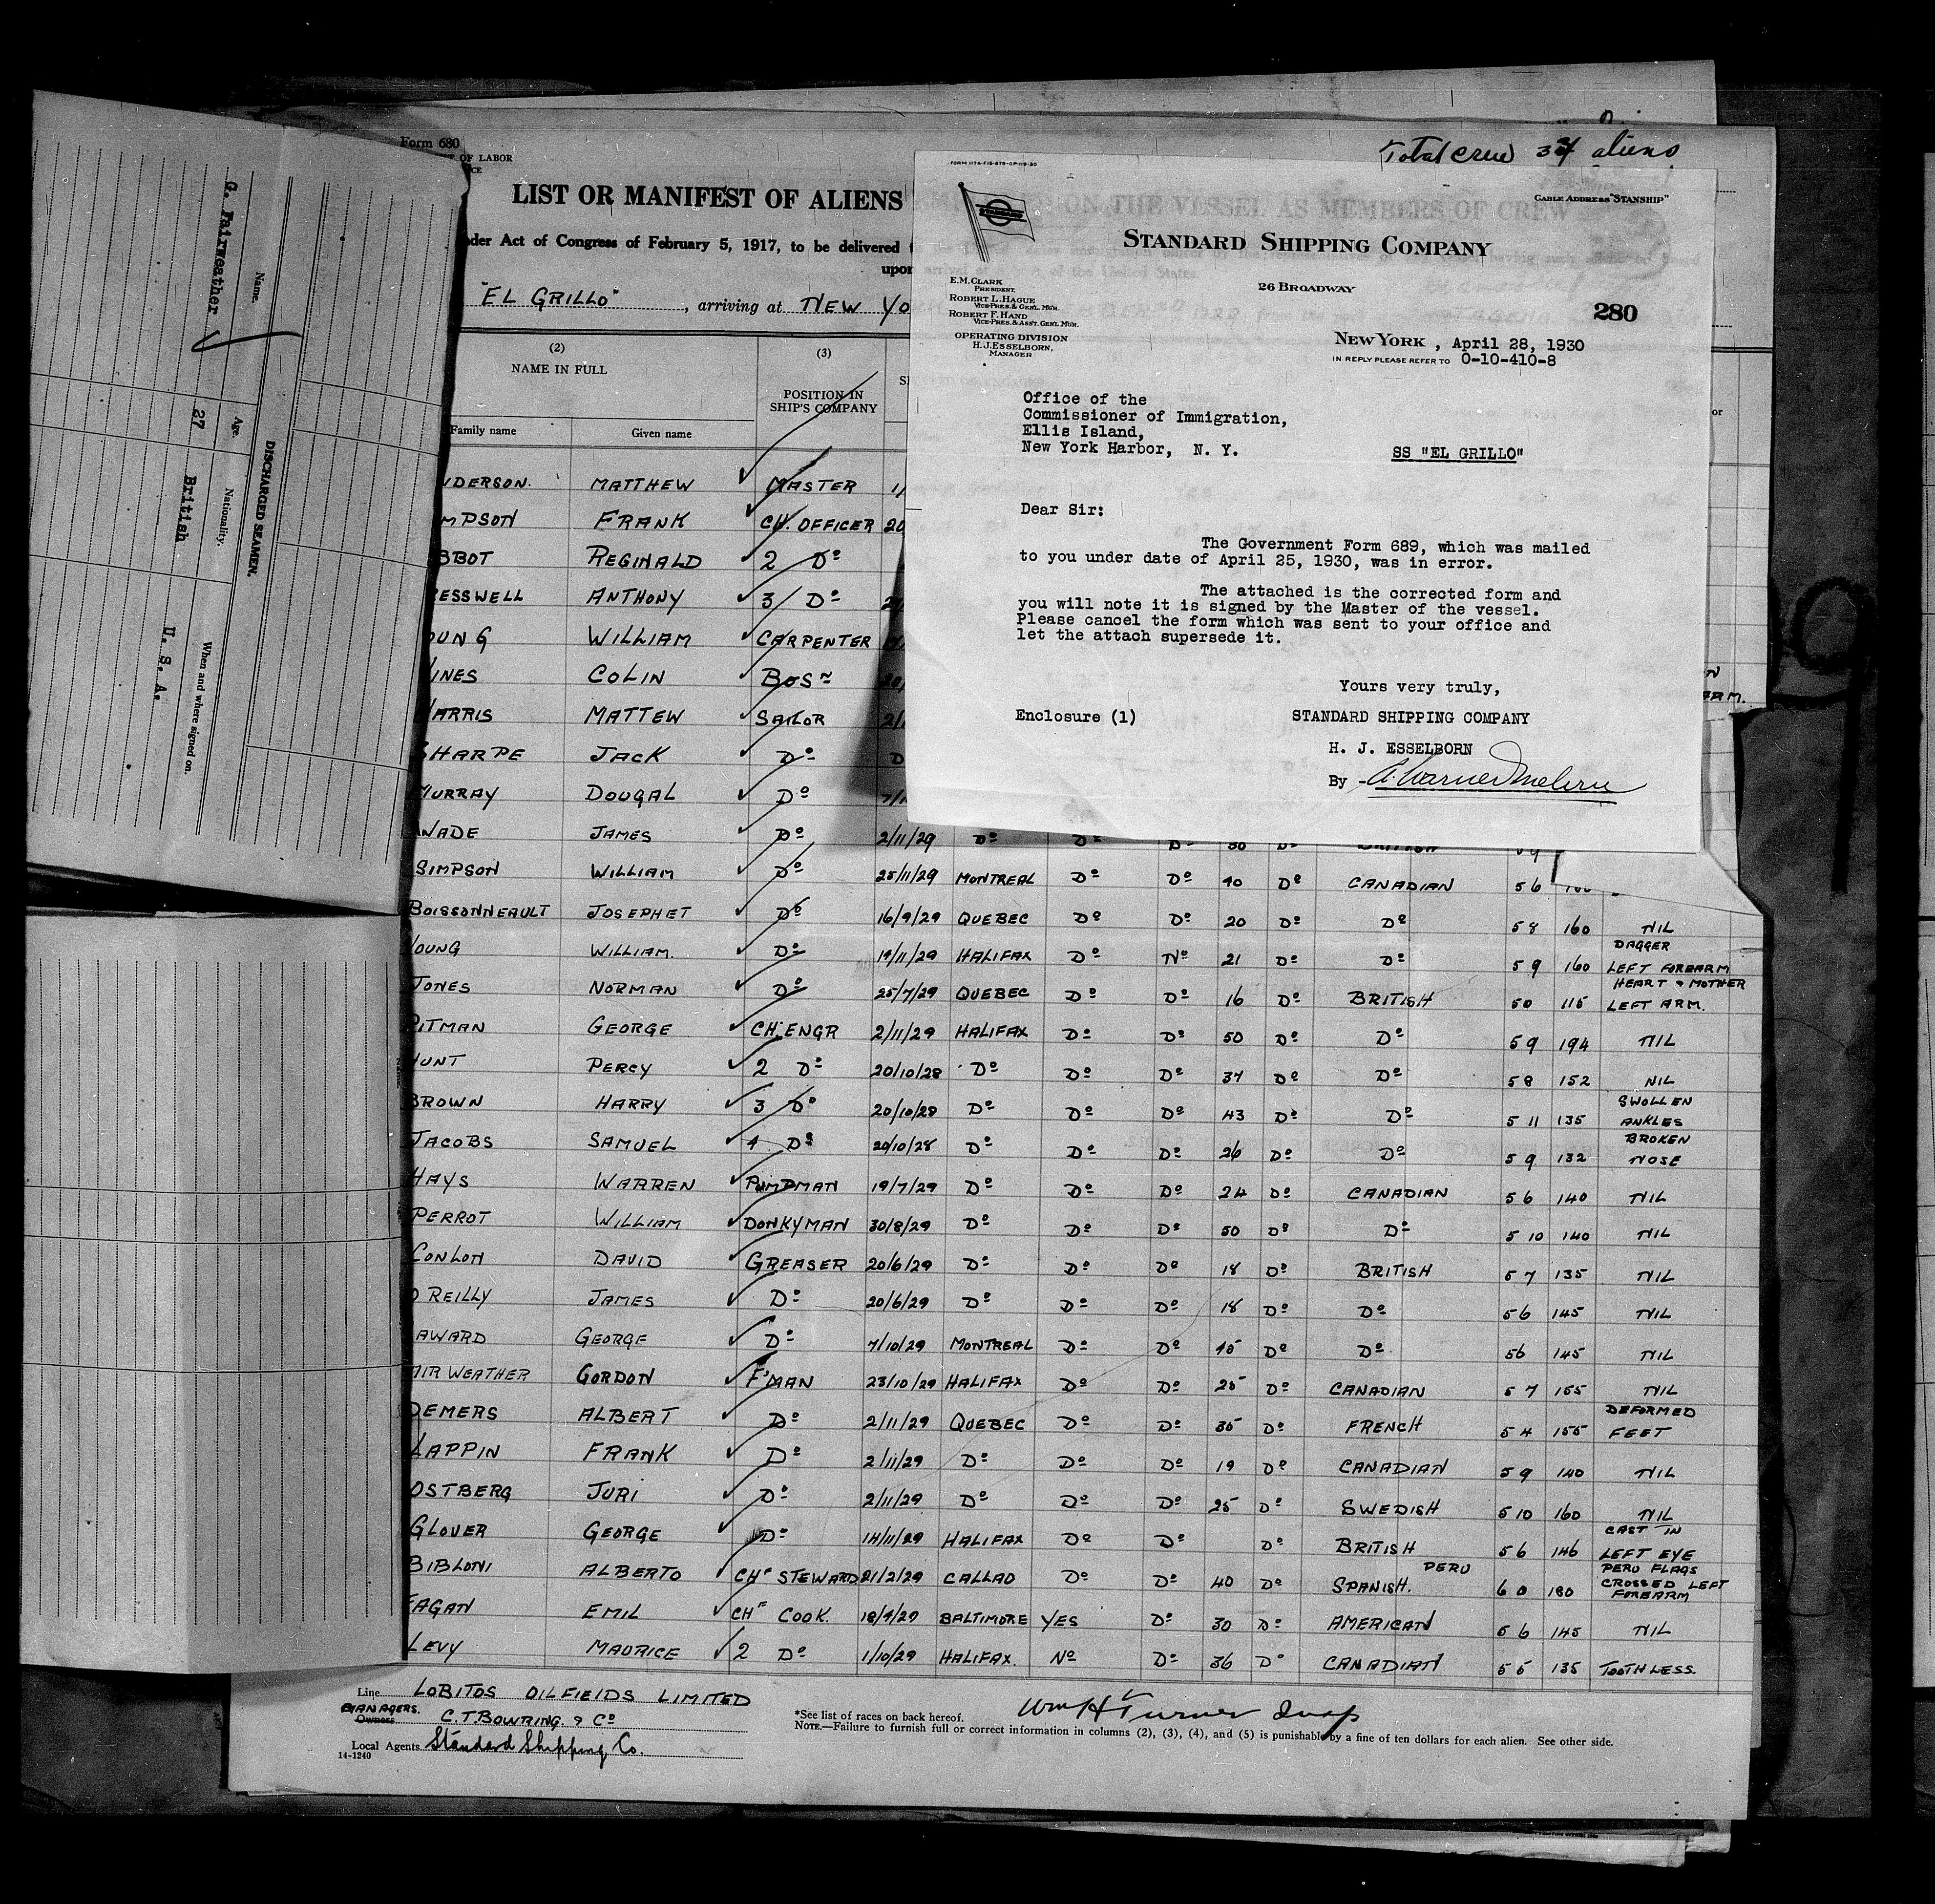 Form 680
OF LABOR
Total crew 34 aliens
LIST OR MANIFEST OF ALIENS
Act of Congress of February 5, 1917, to be delivered
upon
"EL GRILLO", arriving at NEW YO
(2)
NAME IN FULL
Family name
Given name
(3)
POSITION IN
SHIP'S COMPANY
DERSON. MATTHEW MASTER 1/
MPSON FRANK CH. OFFICER 20
BBOT REGINALD 2 Do
ESSWELL ANTHONY 3 Do
OUNG WILLIAM CARPENTER
INES COLIN BOSN
HARRIS MATTEW SAILOR 2/
SHARPE JACK Do D
MURRAY DOUGAL Do 7/
WADE JAMES Do 2/11/29 Do Do
SIMPSON WILLIAM Do 25/11/29 MONTREAL Do Do 40 Do CANADIAN 5 6
BOISSONNEAULT JOSEPHET Do 16/9/29 QUEBEC Do Do 20 Do Do 5 8 160 NIL
YOUNG WILLIAM. Do 19/11/29 HALIFAX Do No 21 Do Do 5 9 160 DAGGER LEFT FOREARM
JONES NORMAN Do 25/7/29 QUEBEC Do Do 16 Do BRITISH 5 0 115 HEART & MOTHER LEFT ARM.
PITMAN GEORGE CH. ENGR 2/11/29 HALIFAX Do Do 50 Do Do 5 9 194 NIL
HUNT PERCY 2 Do 20/10/28 Do Do Do 37 Do Do 5 8 152 NIL
BROWN HARRY 3 Do 20/10/28 Do Do Do 43 Do Do 5 11 135 SWOLLEN ANKLES
JACOBS SAMUEL 4 Do 20/10/28 Do Do Do 26 Do Do 5 9 132 BROKEN NOSE
HAYS WARREN PUMPMAN 19/7/29 Do Do Do 24 Do CANADIAN 5 6 140 NIL
PERROT WILLIAM DONKYMAN 30/8/29 Do Do Do 50 Do Do 5 10 140 NIL
CONLON DAVID GREASER 20/6/29 Do Do Do 18 Do BRITISH 5 7 135 NIL
O REILLY JAMES Do 20/6/29 Do Do Do 18 Do Do 5 6 145 NIL
AWARD GEORGE Do 7/10/29 MONTREAL Do Do 45 Do Do 5 6 145 NIL
AIRWEATHER GORDON F'MAN 23/10/29 HALIFAX Do Do 25 Do CANADIAN 5 7 155 NIL
DEMERS ALBERT Do 2/11/29 QUEBEC Do Do 35 Do FRENCH 5 4 155 DEFORMED FEET
LAPPIN FRANK Do 2/11/29 Do Do Do 19 Do CANADIAN 5 9 140 NIL
OSTBERG JURI Do 2/11/29 Do Do Do 25 Do SWEDISH 5 10 160 NIL
GLOVER GEORGE Do 14/11/29 HALIFAX Do Do Do BRITISH 5 6 146 CAST IN LEFT EYE
BIBLONI ALBERTO CHF STEWARD 21/2/29 CALLAO Do Do 40 Do SPANISH. PERU 6 0 180 PERU FLAGS CROSSED LEFT FOREARM
FAGAN EMIL CHF COOK. 18/4/29 BALTIMORE YES Do 30 Do AMERICAN 5 6 145 NIL
LEVY MAURICE 2 Do 1/10/29 HALIFAX. No Do 36 Do CANADIAN 5 5 135 TOOTHLESS.
Line LOBITOS OILFIELDS LIMITED
MANAGERS.
Owners C.T. BOWRING. & Co
Local Agents Standard Shipping Co.
14-1240
*See list of races on back hereof.
Wm H Turner Insp
NOTE.—Failure to furnish full or correct information in columns (2), (3), (4), and (5) is punishable by a fine of ten dollars for each alien. See other side.
DISCHARGED SEAMEN.
Name.
Age.
Nationality.
When and where signed on.
G. Fairweather
27
British
U. S. A.
CABLE ADDRESS "STANSHIP"
STANDARD SHIPPING COMPANY
26 BROADWAY
E.M. CLARK
PRESIDENT.
ROBERT L. HAGUE
VICE-PRES. & GEN'L. MGR.
ROBERT F. HAND
VICE-PRES. & ASS'T. GEN'L. MGR.
OPERATING DIVISION
H.J. ESSELBORN,
MANAGER
280
NEW YORK, April 28, 1930
IN REPLY PLEASE REFER TO O-10-410-8
Office of the
Commissioner of Immigration,
Ellis Island,
New York Harbor, N. Y.
SS "EL GRILLO"
Dear Sir:
The Government Form 689, which was mailed
to you under date of April 25, 1930, was in error.
The attached is the corrected form and
you will note it is signed by the Master of the vessel.
Please cancel the form which was sent to your office and
let the attach supersede it.
Yours very truly,
Enclosure (1)
STANDARD SHIPPING COMPANY
H. J. ESSELBORN
By